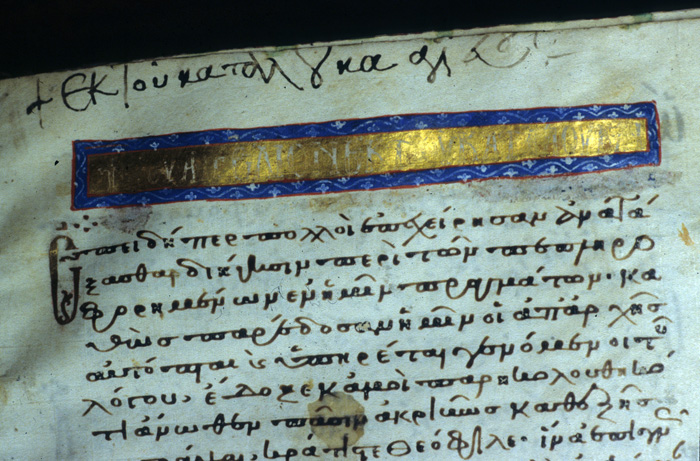 + ἐκ τοῦ κατα
Ἐπειδήπερ πολλοὶ ἐπεχείρησαν ἀνατά
ξασθαι διήγησιν περὶ τῶν πεπληρο
φορημένων ἐν ἡμῖν πραγμάτων· κα
θὼς παρέδοσαν ἡμῖν οἱ ἀπαρχῆς
αὐτόπται καὶ ὑπηρέται γενόμενοι τοῦ
λόγου, ἔδοξε κἀμοὶ παρηκολουθηκό
τι ἄνωθεν πᾶσιν ἀκριβῶς καθεξῆς
κράτιστε Θεόφιλε· ἵνα ἐπιγν